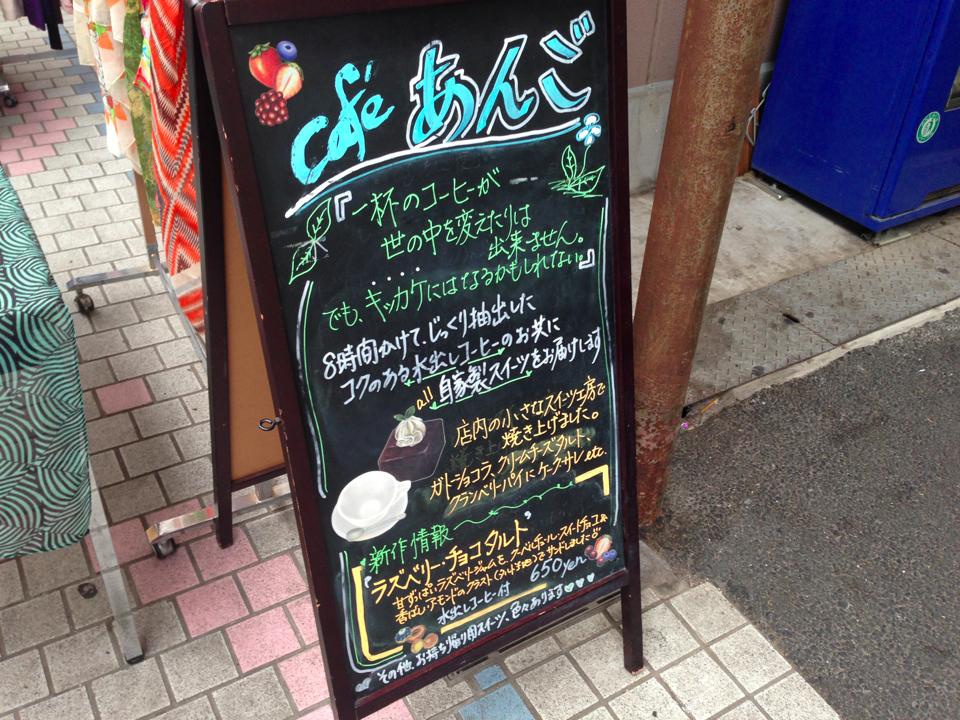 café あんご
『一杯のコーヒーが
世の中を変えたりは
出来ません。』
でも、キッカケにはなるかもしれない。
8時間かけて、じっくり抽出した
コクのある水出しコーヒーのお共に
all 自家製スイーツをお届けします
店内の小さなスイーツ工房で
焼き上げました。
ガトーショコラ、クリームチーズタルト、
クランベリーパイにケークサレetc.
新作情報
『ラズベリー・チョコタルト』
甘ずっぱいラズベリージャムを、クーベルチュール・スイートチョコ&
香ばしいアーモンドのクラスト(タルト生地)でサンドしました
水出しコーヒー付 650yen
その他、お持ち帰り用スイーツ、色々あります♥♥♥